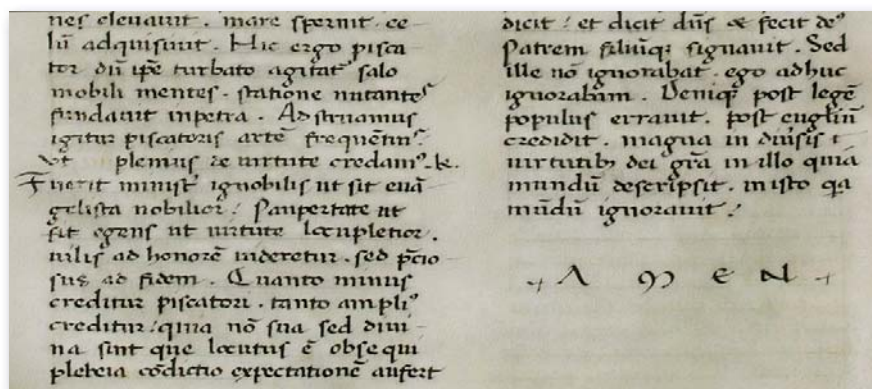 nes eleuauit . mare spernit . ce
lū adquisiuit . Hic ergo pisca
tor dū ip̄e turbato agitatᷣ salo
mobili mentes . statione nutanteˢ
fundauit in petra . Adstruamus
igitur piscatoris artē frequentiuˢ .
plemius de uirtute credamˀ .
Fuerit ministᷣ ignobilis ut sit euā
gelista nobilior . Paupertate ut
sit egens ut uirtute locupletior .
uilis ad honorē uideretur . sed p̄cio
sus ad fidem . Quanto minus
creditur piscatori . tanto ampliˀ
creditur : quia nō sua sed diui
na sint que locutus ē obsequi
plebeia cōdictio expectationē aufert
dicit : et dicit dn̄s & fecit deˀ
Patrem filiūq; signauit . Sed
ille nō ignorabat . ego adhuc
ignorabam . Deniq; post legē
populus errauit . post euḡliū
credidit . magna in diuᷣsis
uirtutib; dei gr̄a in illo quia
mundū descripsit . in isto qa
mūdū ignorauit .
A M E N